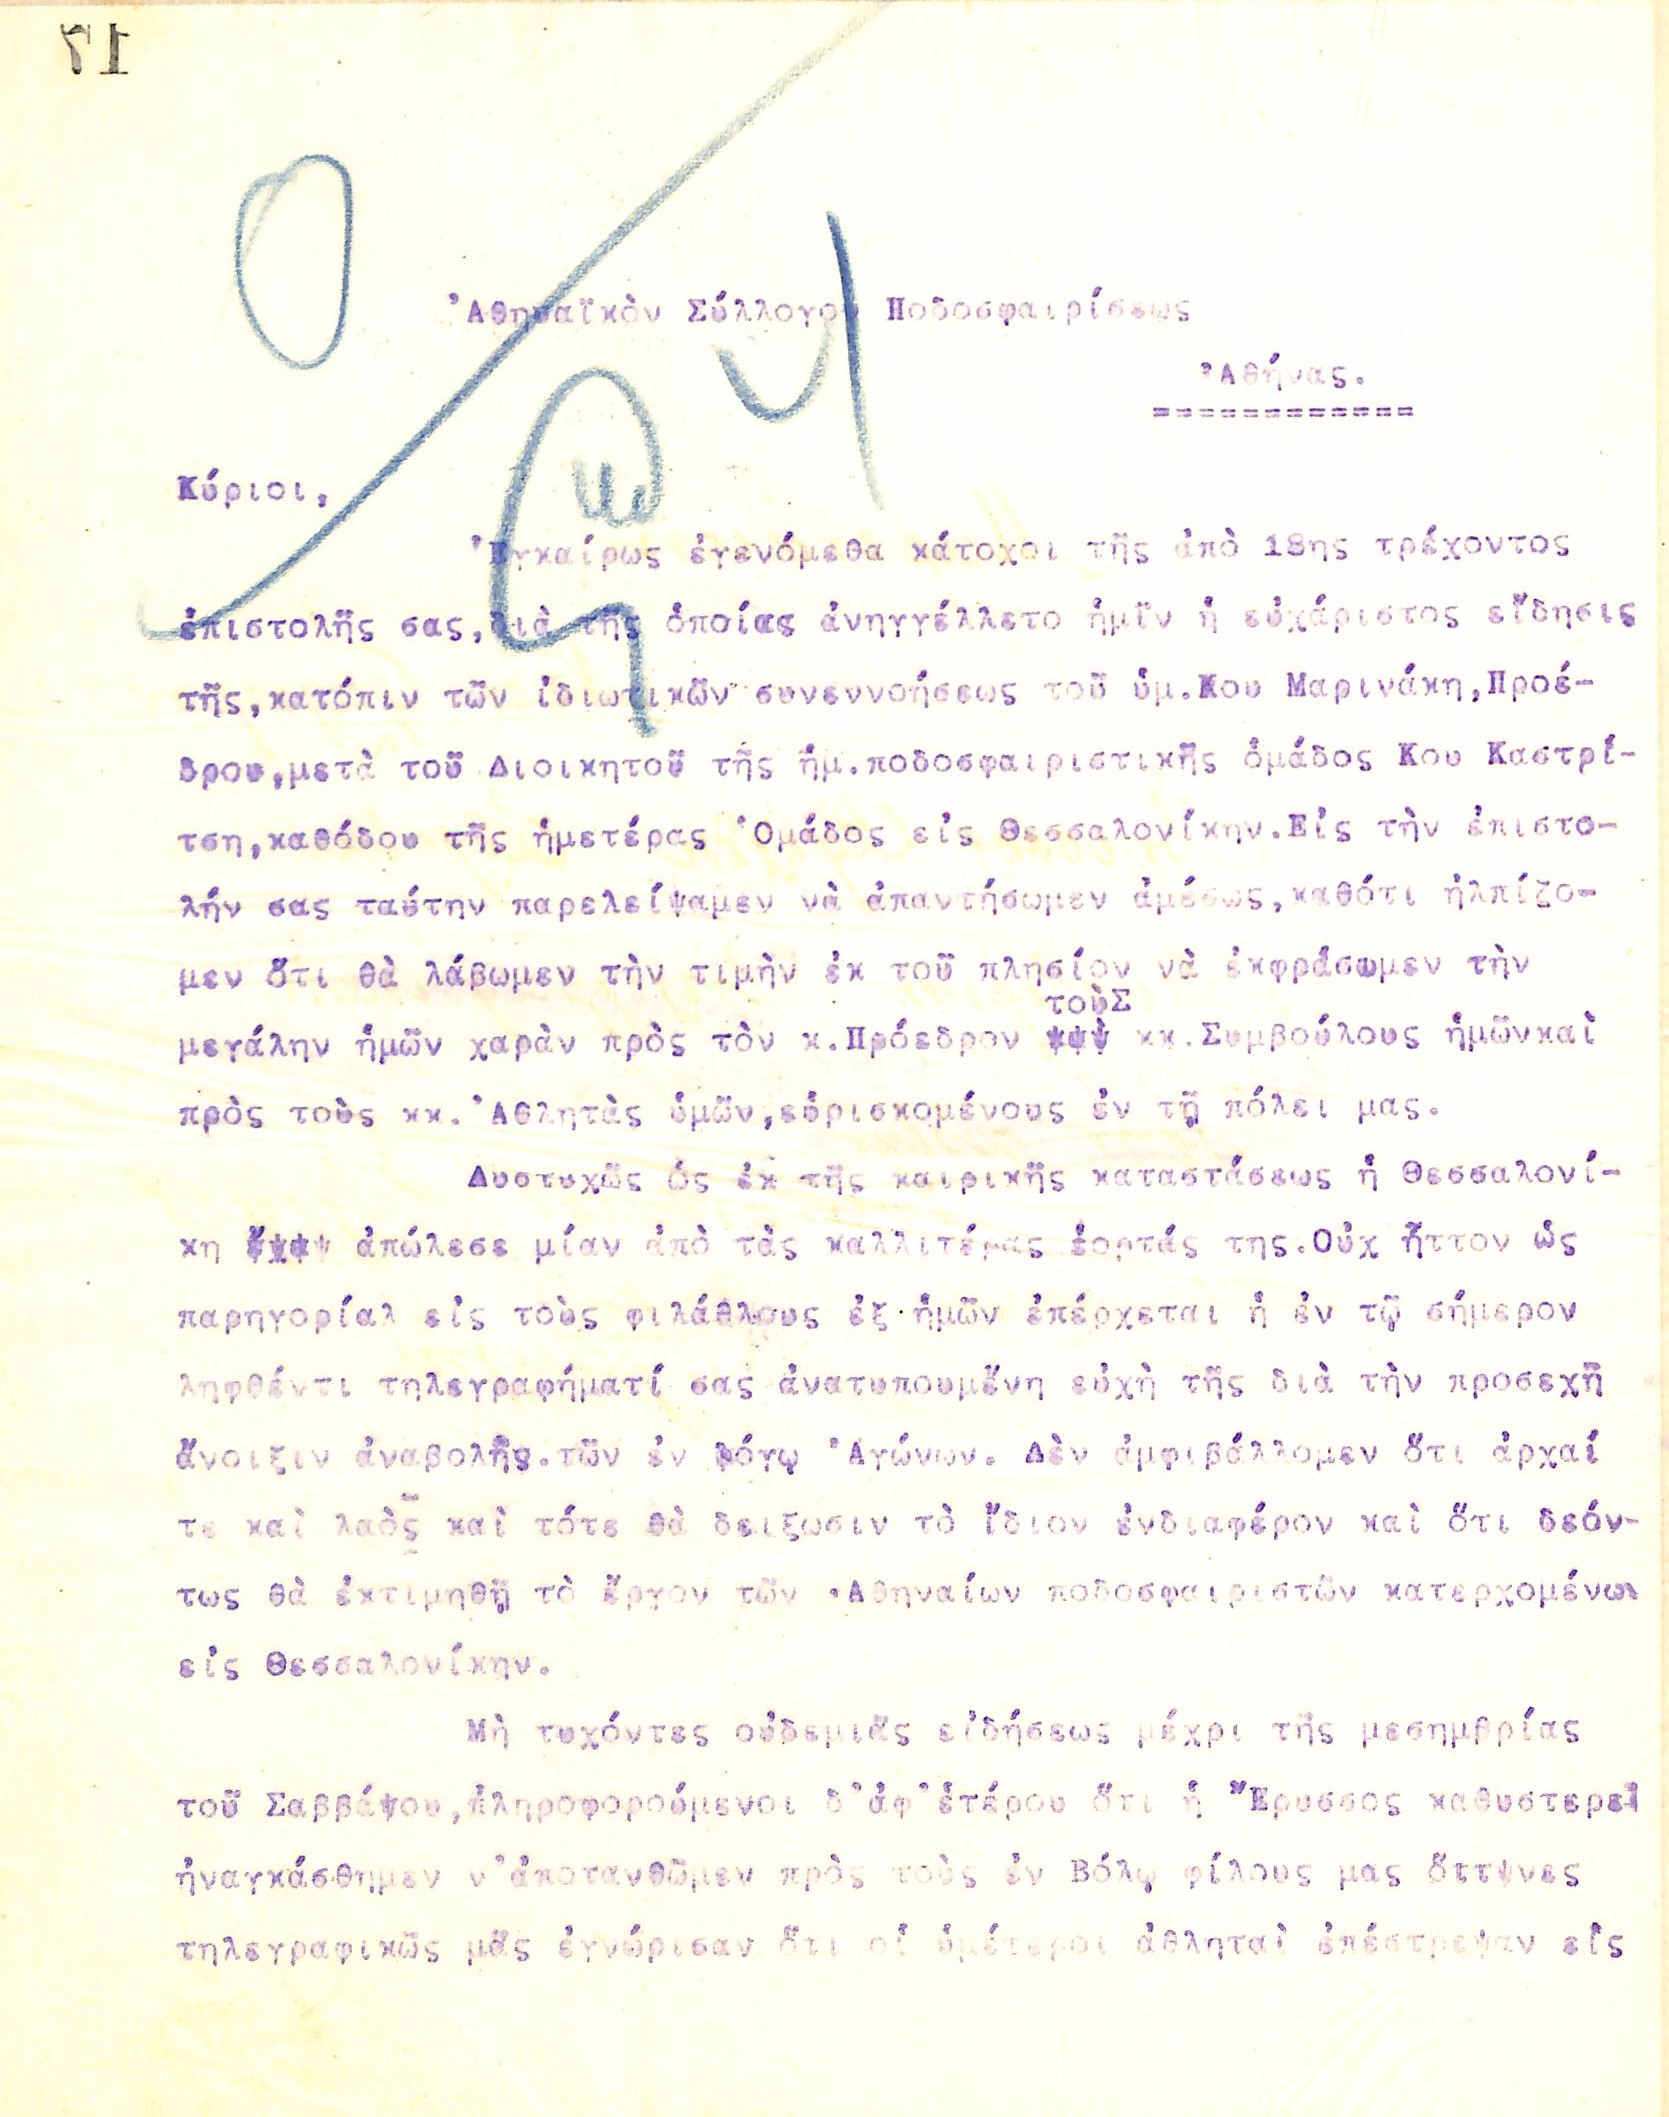 17
Ἀθηναϊκὸν Σύλλογον Ποδοσφαιρίσεως
Ἀθήνας.
Κύριοι,
Ἐγκαίρως ἐγενόμεθα κάτοχοι τῆς ἀπὸ 18ης τρέχοντος
ἐπιστολῆς σας,διὰ τῆς ὁποίας ἀνηγγέλλετο ἡμῖν ἡ εὐχάριστος εἴδησις
τῆς,κατόπιν τῶν ἰδιωτικῶν συνεννοήσεως τοῦ ὑμ.Κου Μαρινάκη,Προέ-
δρου,μετὰ τοῦ Διοικητοῦ τῆς ἡμ.ποδοσφαιριστικῆς ὁμάδος Κου Καστρί-
τση,καθόδου τῆς ἡμετέρας Ὁμάδος εἰς Θεσσαλονίκην.Εἰς τὴν ἐπιστο-
λήν σας ταύτην παρελείψαμεν νὰ ἀπαντήσωμεν ἀμέσως,καθότι ἠλπίζο-
μεν ὅτι θὰ λάβωμεν τὴν τιμὴν ἐκ τοῦ πλησίον νὰ ἐκφράσωμεν τὴν
τοὺΣ
μεγάλην ἡμῶν χαρὰν πρὸς τὸν κ.Πρόεδρον κκ.Συμβούλους ἡμῶνκαὶ
πρὸς τοὺς κκ.Ἀθλητὰς ὑμῶν,εὑρισκομένους ἐν τῇ πόλει μας.
Δυστυχῶς ὡς ἐκ τῆς καιρικῆς καταστάσεως ἡ Θεσσαλονί-
κη ἀπώλεσε μίαν ἀπὸ τὰς καλλιτέρας ἑορτάς της.Οὐχ ἧττον ὡς
παρηγορίαλ εἰς τοὺς φιλάθλους ἐξ ἡμῶν ἐπέρχεται ἡ ἐν τῷ σήμερον
ληφθέντι τηλεγραφήματί σας ἀνατυπουμένη εὐχὴ τῆς διὰ τὴν προσεχῆ
ἄνοιξιν ἀναβολῆς.τῶν ἐν λόγῳ Ἀγώνων. Δὲν ἀμφιβάλλομεν ὅτι ἀρχαί
τε καὶ λαὸς καὶ τότε θὰ δειξωσιν τὸ ἴδιον ἐνδιαφέρον καὶ ὅτι δεόν-
τως θὰ ἐκτιμηθῇ τὸ ἔργον τῶν Ἀθηναίων ποδοσφαιριστῶν κατερχομένων
εἰς Θεσσαλονίκην.
Μὴ τυχόντες οὐδεμιᾶς εἰδήσεως μέχρι τῆς μεσημβρίας
τοῦ Σαββάψου,πληροφορούμενοι δ'ἀφ'ἑτέρου ὅτι ἡ Ἔρυσσος καθυστερεῖ
ἠναγκάσθημεν ν'ἀποτανθῶμεν πρὸς τοὺς ἐν Βόλῳ φίλους μας ὅττψνες
τηλεγραφικῶς μᾶς ἐγνώρισαν ὅτι οἱ ὑμέτεροι ἀθληταὶ ἐπέστρεψαν εἰς